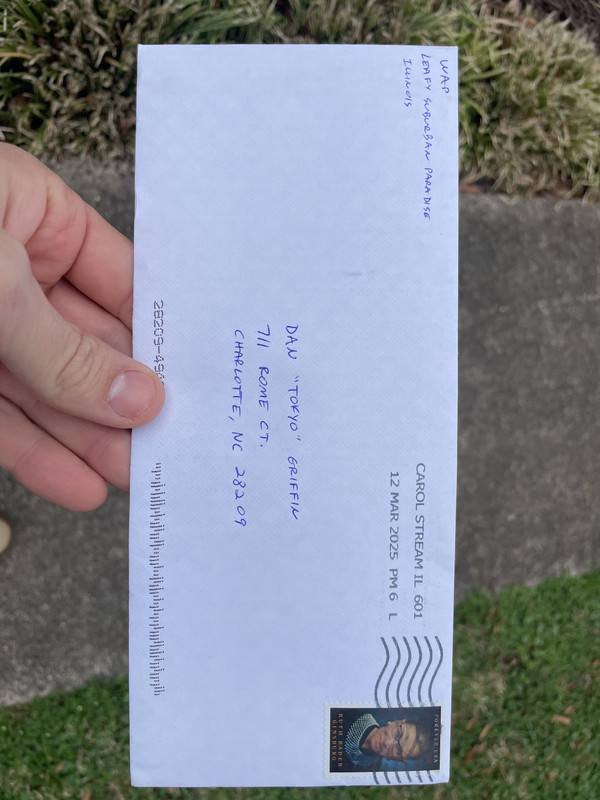 WAP
LEAFY SUBURBAN PARADISE
ILLINOIS
CAROL STREAM IL 601
12 MAR 2025 PM 6 L
FOREVER/USA
RUTH BADER
GINSBURG
DAN "TOKYO" GRIFFIN
711 ROME CT.
CHARLOTTE, NC 28209
28209-494